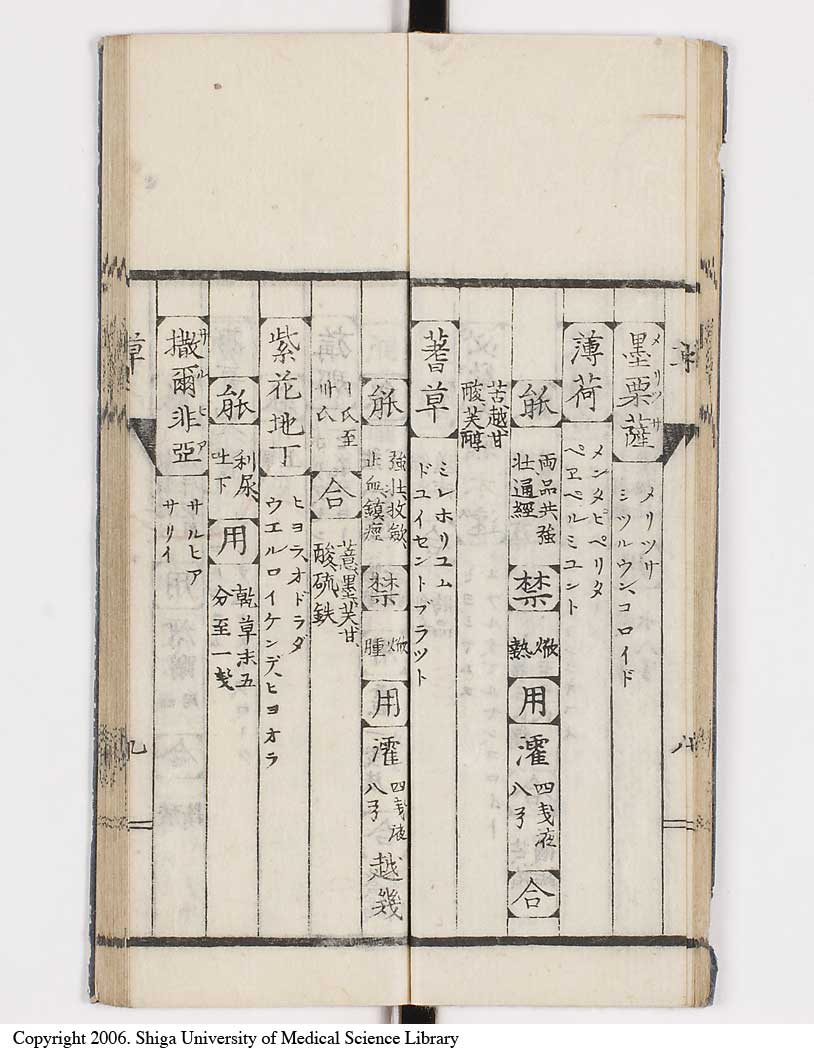 草
八
墨栗薩
メリツサ
メリツサ
ミツルウン、コロイド
薄荷
メンタピペリタ
ペエペルミユント
能
両品共強
壮通經
禁
焮
熱
用
濯
四戔液
八弓
合
苦越甘
酸芙醇
蓍草
ミレホリユム
ドユイセントブラツト
能
強壮收斂
止血鎮痙
禁
焮
腫
用
濯
四戔液
八弓
越幾
氏至
氏
合
薏墨芙甘
酸硫鉄
紫花地丁
ヒヨラ、オドラダ
ウエルロイケンデ、ヒヨオラ
能
利尿
吐下
用
乾草末五
分至一戔
撒爾非亞
サルヒア
サルヒア
サリイ
草
九